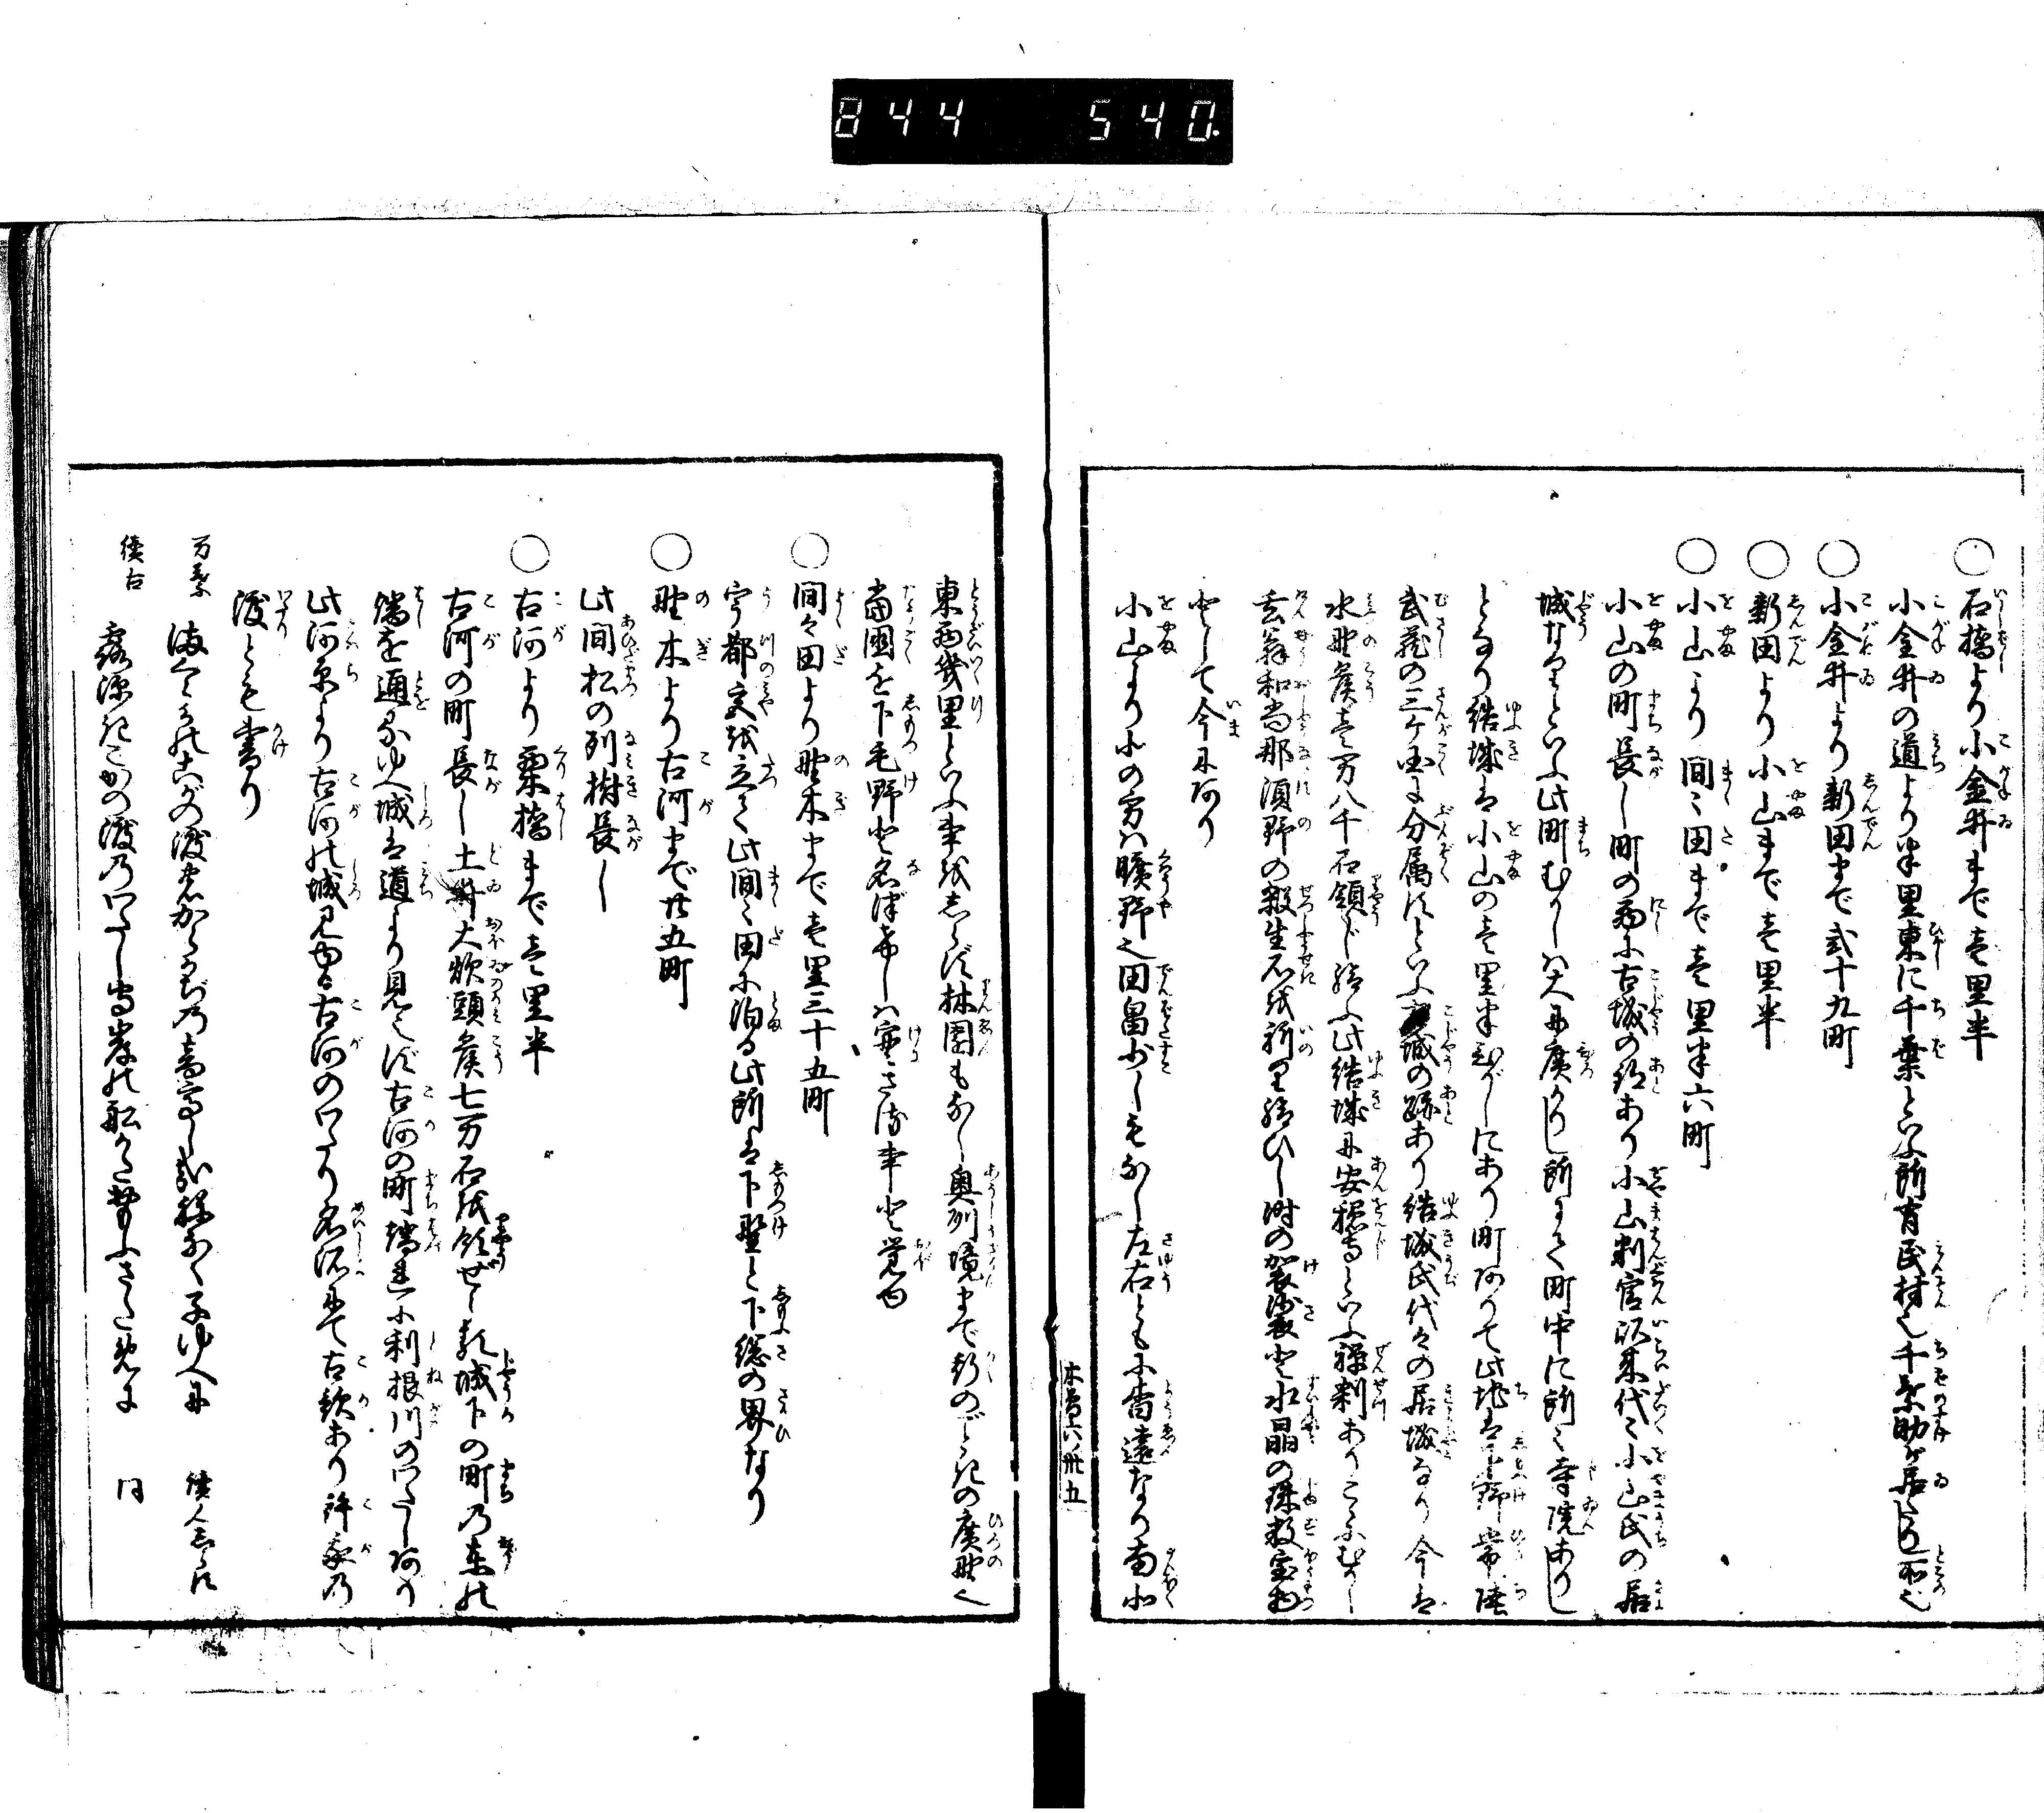 844 540.
○石橋より小金井まで壱里半
小金井の道より半里東に千葉といふ所有民村也千葉助が居たる所也
○小金井より新田まで弐十九町
○新田より小山まで壱里半
○小山より間々田まで壱里半六町
小山の町長し町の西に古城の跡あり小山判官以来代々小山氏の居
城なりといふ此町むかしハ大に廣かりし所にて町中に所々寺院ありし
となり結城は小山の壱里半ひがしにあり町ありて此地は下野常陸
武蔵の三ヶ国に分属すといふ古城の跡あり結城氏代々の居城なり今は
水野侯壱万八千石領じ給ふ此結城に安穏寺といふ禅刹ありここにむかし
玄翁和尚那須野の殺生石を祈り給ひし時の袈裟と水晶の珠数宝物
として今にあり
小山より北の方ハ曠野也田畠少しもなし左右ともに杳遠なり南北
本省六ノ卅五
東西幾里といふ事をしらず林園もなし奥州境まで如のごときの廣野也
當国を下毛野と名づけしハ実さる事と覚ゆ
○間々田より野木まで壱里三十五町
宇都宮を立て此間々田に泊る此所は下野と下総の界なり
○野木より古河まで廿五町
此間松の列樹長し
○古河より栗橋まで壱里半
古河の町長し土井大炊頭侯七万石を領ぜらる城下の町の東の
端を通るゆへ城は道より見えず古河の町端に小利根川のわたしあり
此河原より古河の城見ゆる古河のわたり名所にて古歌あり許我の
渡とも書り
万葉 まくらがのこがの渡のからかぢの音高しもなねなくこゆへに 讀人しらず
續古 こがの渡のわたし 同